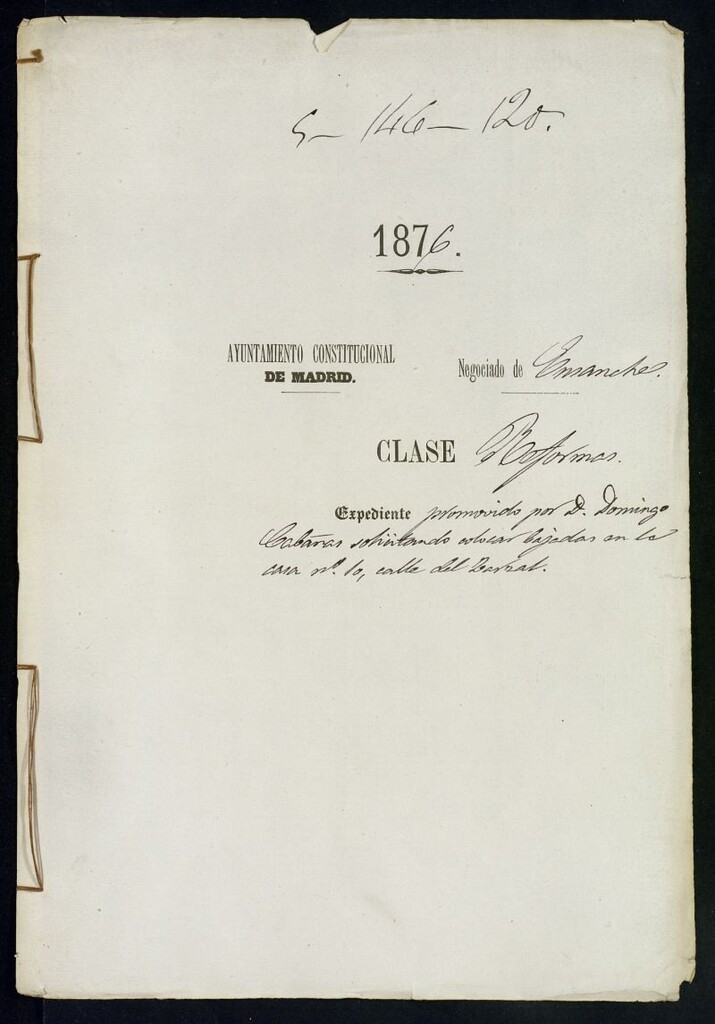 5-146-120.
1876.
AYUNTAMIENTO CONSTITUCIONAL
DE MADRID.
Negociado de Ensanche.
CLASE Reformas.
Expediente promovido por D. Domingo
Cabañas solicitando colocar bajadas en la
casa nº. 10, calle del